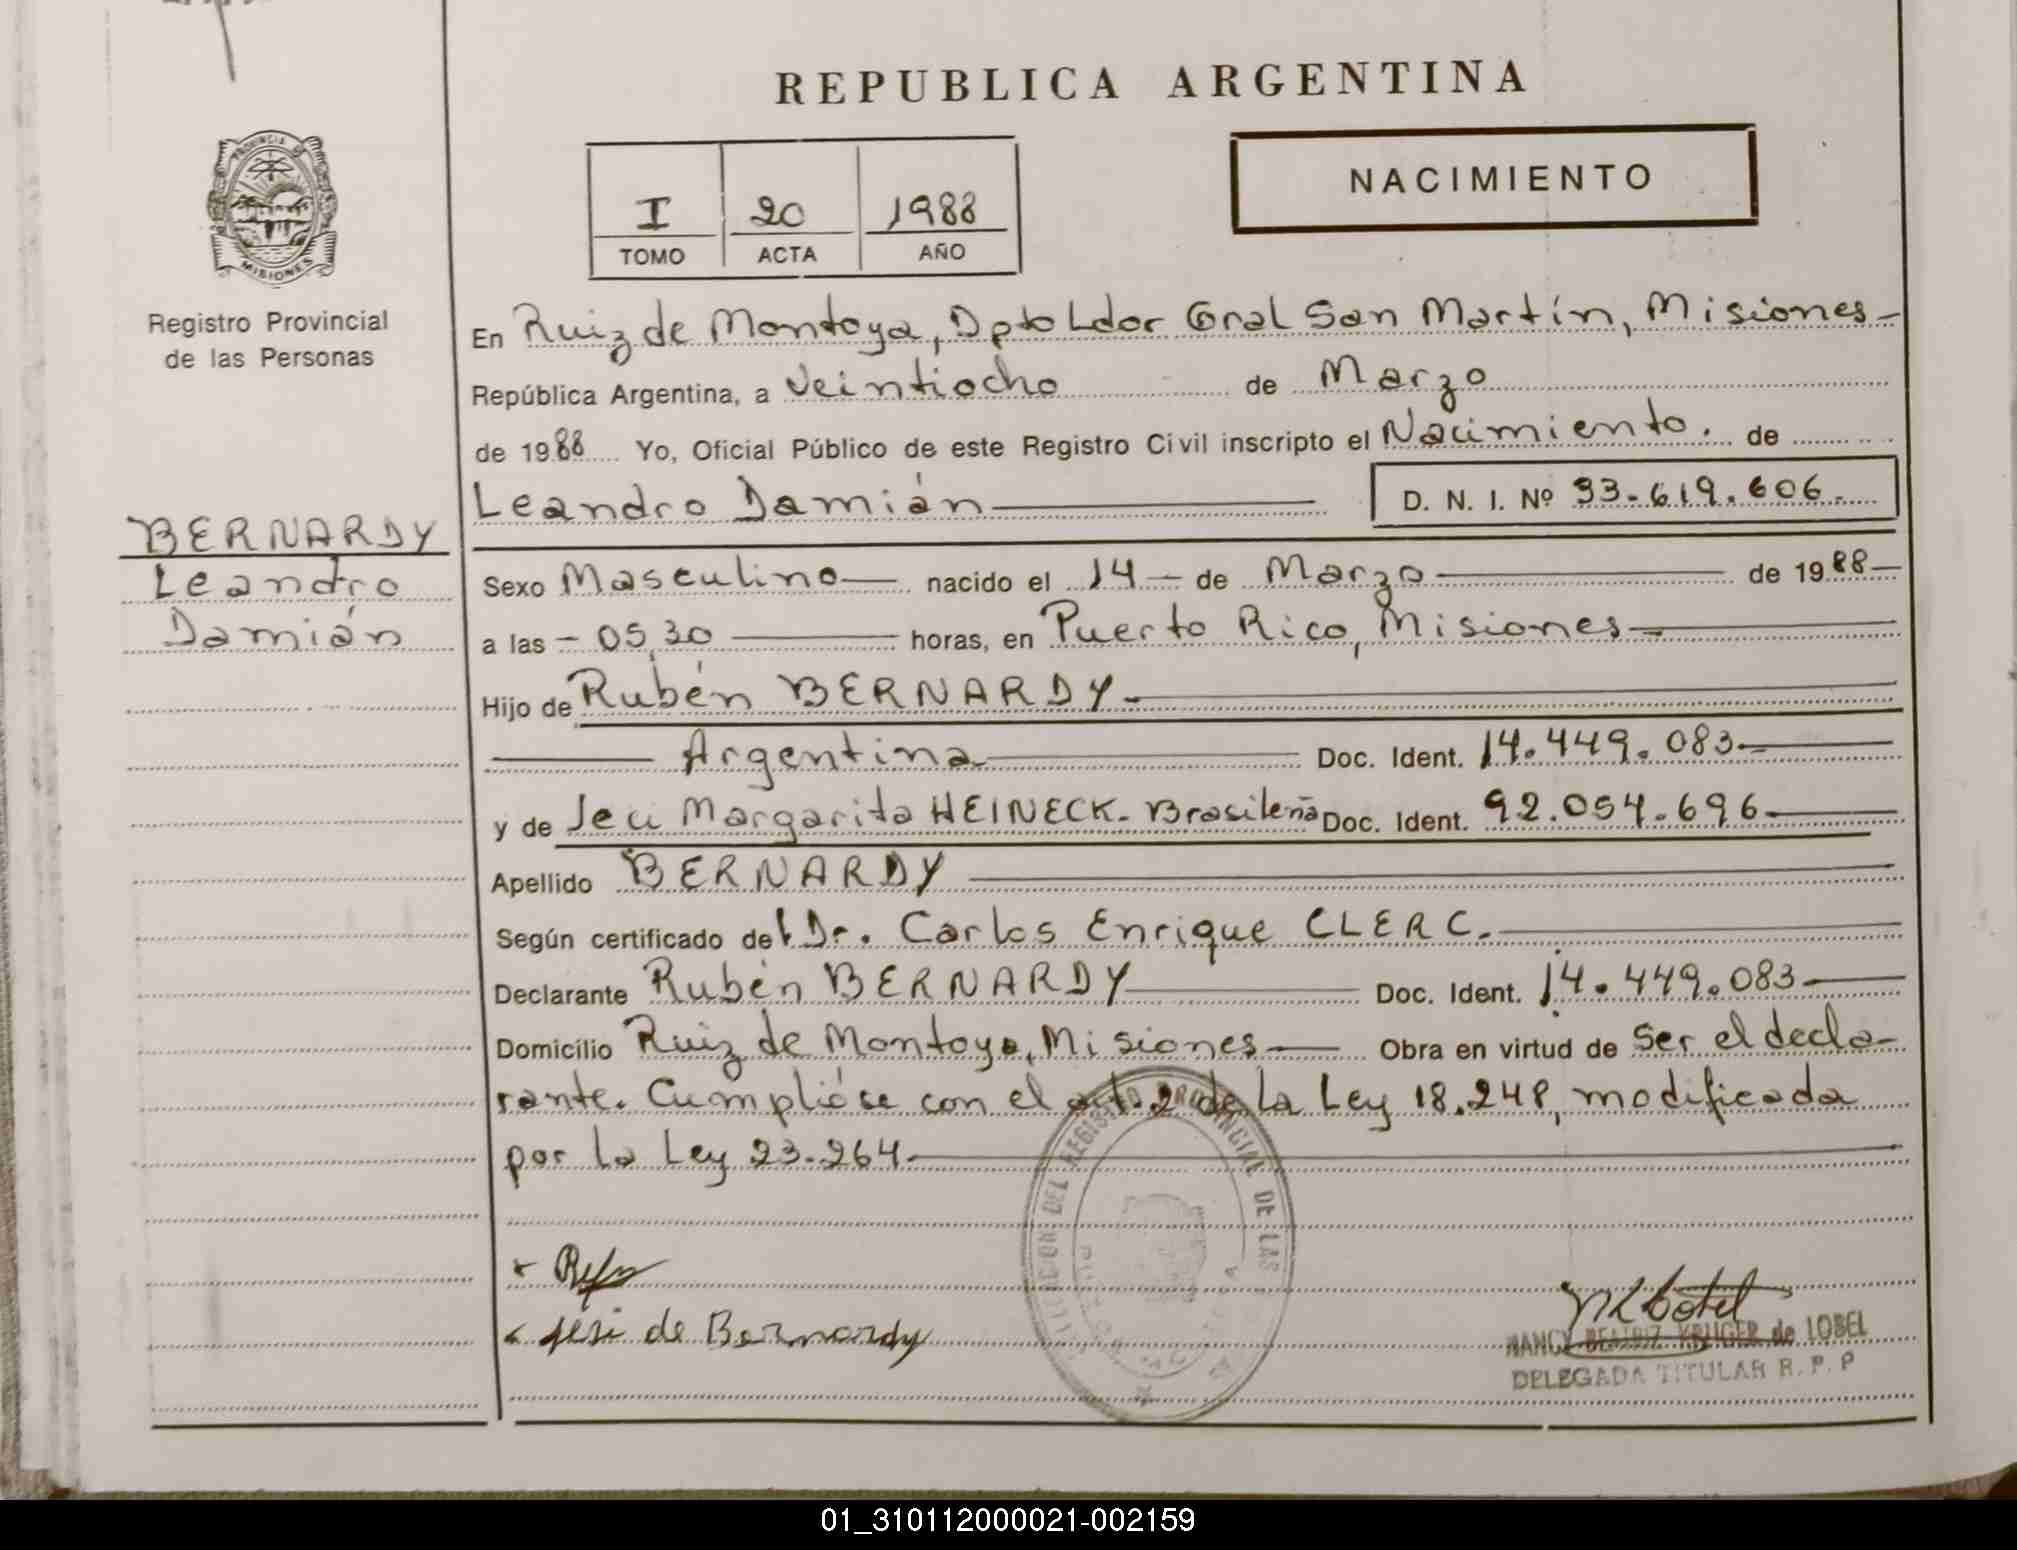 REPUBLICA ARGENTINA
PROVINCIA DE
MISIONES
Registro Provincial
de las Personas
I 20 1988
TOMO ACTA AÑO
NACIMIENTO
En Ruiz de Montoya, Dpto Ldor Gral San Martín, Misiones
República Argentina, a Veintiocho de Marzo
de 1988 Yo, Oficial Público de este Registro Civil inscripto el Nacimiento. de
Leandro Damián D. N. I. Nº 33.619.606.
BERNARDY
Leandro
Damián
Sexo Masculino nacido el 14 de Marzo de 1988
a las 05,30 horas, en Puerto Rico, Misiones
Hijo de Rubén BERNARDY
Argentina Doc. Ident. 14.449.083
y de Margarita HEINECK. Brasileña Doc. Ident. 92.054.696
Apellido BERNARDY
Según certificado del Dr. Carlos Enrique CLERC.
Declarante Rubén BERNARDY Doc. Ident. 14.449.083
Domicilio Ruiz de Montoya, Misiones Obra en virtud de ser el decla-
rante. Cumplióse con el art. 2 de la Ley 18.248, modificada
por la Ley 23.264.
DEL REGISTRO PROVINCIAL DE LAS
de Bernardy
NANCY BEATRIZ KRUGER de LOBEL
DELEGADA TITULAR R. P. P
01_310112000021-002159